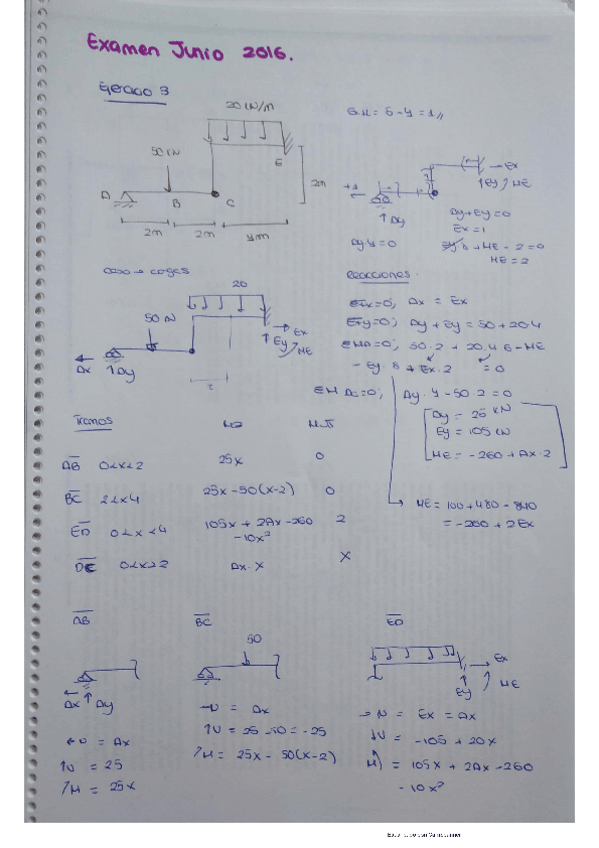 Examen Junio 2016.
Ejercicio 3
20 kN/m
G.H = 6 - 4 = 1 //
50 kN
A
B
C
E
2m
2m
2m
4m
Ex
Ey
ME
Ay
Ay + Ey = 0
Ex = 1
Ay 4 = 0
Ey 8 + ME - 2 = 0
ME = 2
caso → cargas
20
50 N
Ax
Ay
Ex
Ey
ME
2
Reacciones
ΣFx=0; Ax = Ex
ΣFy=0; Ay + Ey = 50 + 20·4
ΣMA=0; 50·2 + 20·4·6 - ME
- Ey·8 + Ex·2 = 0
ΣM AC=0; Ay·4 - 50·2 = 0
Ay = 25 kN
Ey = 105 kN
ME = -260 + Ax·2
→ ME = 100 + 480 - 840
= -260 + 2Ex
Tramos
AB 0<x<2 25x 0
BC 2<x<4 25x - 50(x-2) 0
ED 0<x<4 105x + 2Ax - 260 2
- 10x²
DC 0<x<2 Ax·x x
AB
BC
ED
50
Ax
Ay
Ex
Ey
ME
←N = Ax
↑V = 25
M = 25x
→N = Ax
↑V = 25 - 50 = -25
M = 25x - 50(x-2)
→ N = Ex = Ax
↓V = -105 + 20x
M = 105x + 2Ax - 260
- 10x²